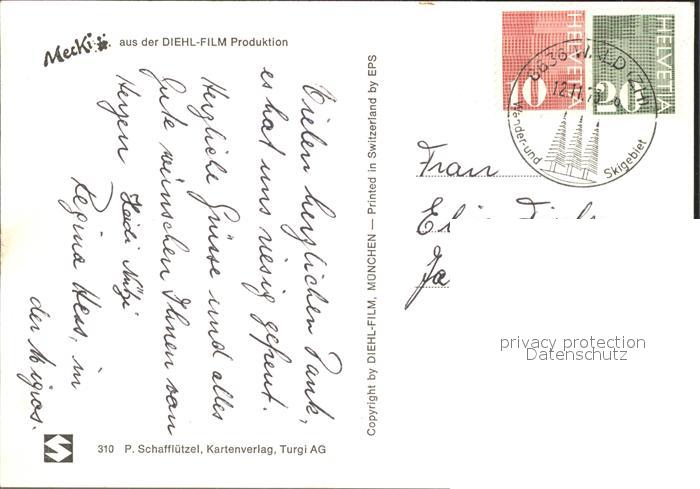 Mecki aus der DIEHL-FILM Produktion
Vielen herzlichen Dank,
es hat uns riesig gefreut.
Herzliche Grüsse und alles
Gute wünschen Ihnen von
Herzen Heidi
Regina Hess, in
der Migros.
310 P. Schafflützel, Kartenverlag, Turgi AG
Copyright by DIEHL-FILM, MÜNCHEN — Printed in Switzerland by EPS
HELVETIA
10
HELVETIA
20
8636 WALD (ZH)
12.11.73
Wander- und Skigebiet
Frau
privacy protection
Datenschutz